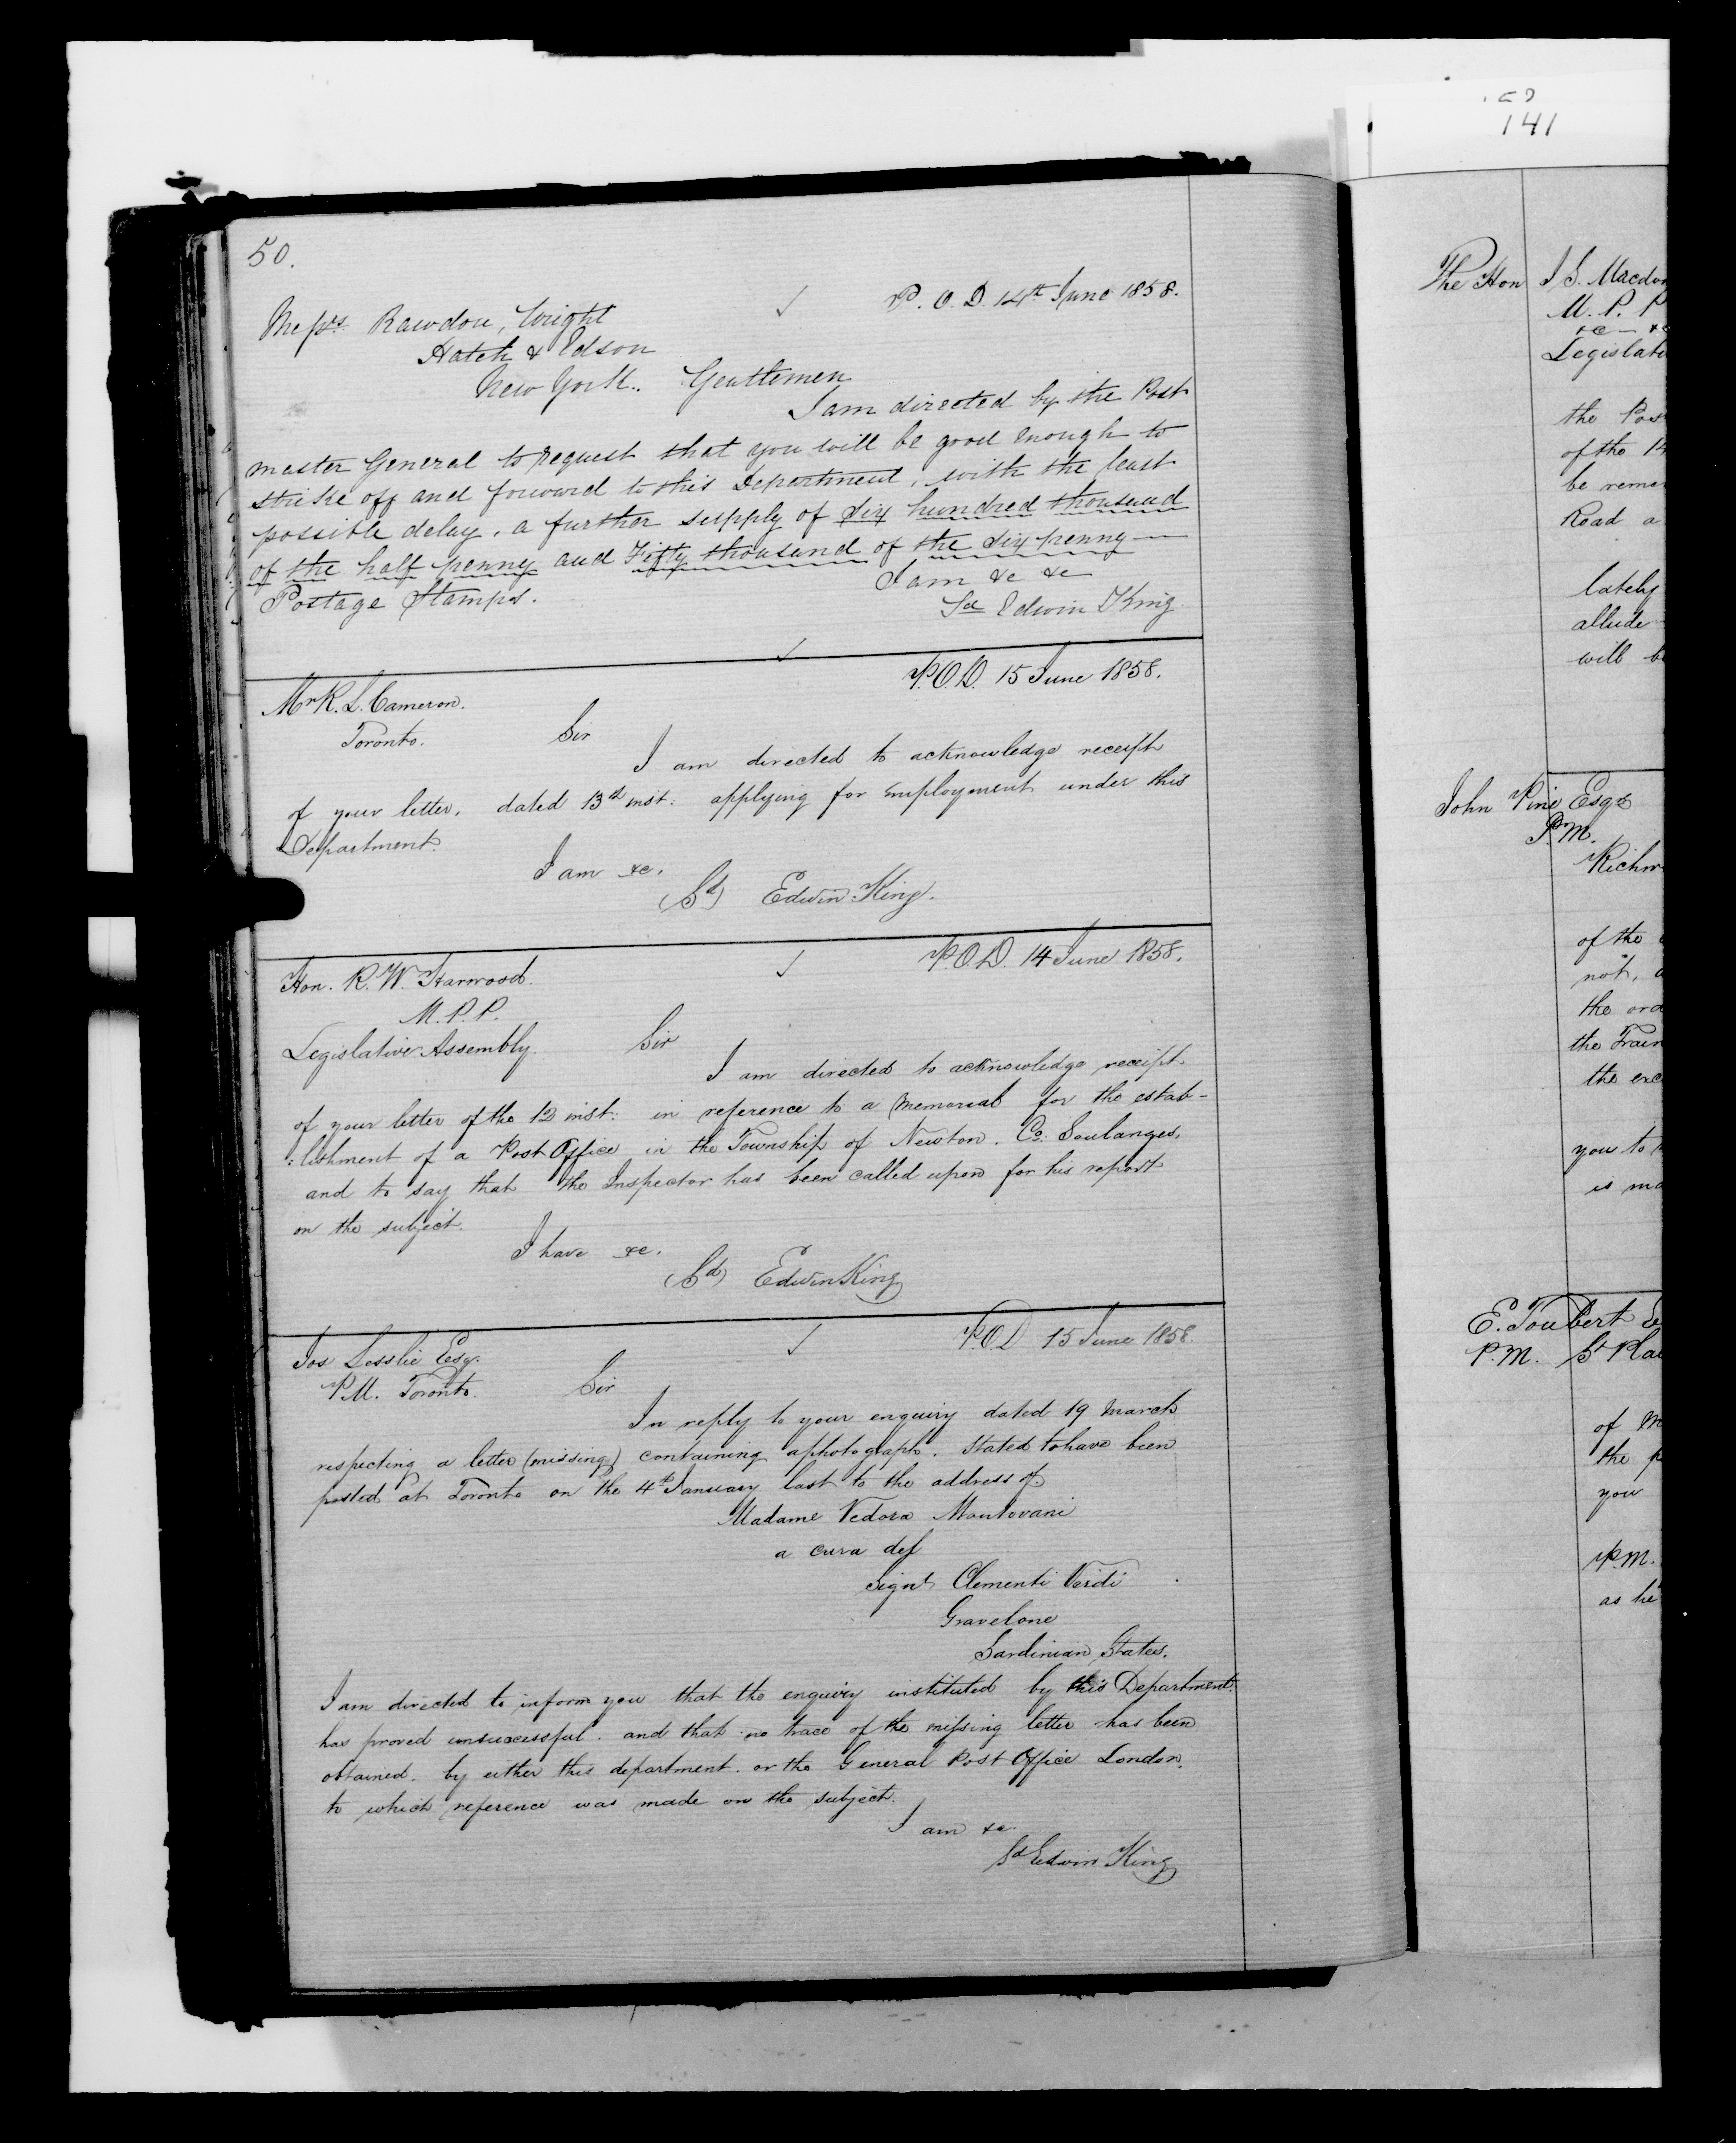 50.
P. O. D. 14th June 1858.
Messrs Rawdon, Wright
Hatch & Edson
New York. Gentlemen
I am directed by the Post
master General to request that you will be good enough to
strike off and forward to this Department, with the least
possible delay, a further supply of Six hundred thousand
of the half penny and Fifty thousand of the six penny —
Postage Stamps.
I am &c &c
Sd Edwin King
P.O.D. 15 June 1858.
Mr R. L. Cameron.
Toronto. Sir
I am directed to acknowledge receipt
of your letter, dated 13th inst: applying for employment under this
Department.
I am &c.
(Sd) Edwin King.
P.O.D. 14 June 1858.
Hon. R. W. Harwood.
M. P. P.
Legislative Assembly. Sir
I am directed to acknowledge receipt
of your letter of the 12 inst: in reference to a memorial for the estab-
:lishment of a Post Office in the Township of Newton. Co: Soulanges,
and to say that the Inspector has been called upon for his report
on the subject.
I have &c.
(Sd) Edwin King
P.O.D 15 June 1858.
Jos Lesslie Esq.
P.M. Toronto. Sir
In reply to your enquiry dated 19 March
respecting a letter (missing) containing a photograph, stated to have been
posted at Toronto on the 4th January last to the address of
Madame Vedova Mantovani
a cura del
Signr Clementi Verdi
Gravelone
Sardinian States.
I am directed to inform you that the enquiry instituted by this Department
has proved unsuccessful. and that no trace of the missing letter has been
obtained. by either this department. or the General Post Office London,
to which reference was made on the subject.
I am &c.
Sd Edwin King
141
The Hon J. S. Macdon
M. P. P
&c — &c
Legislati
the Pos
of the 14
be remo
Road a
lately
allude
will b
John Pine Esqr
P.M.
Richm
of the
not, a
the ord
the Train
the exc
you to
is ma
E. Joubert
P.M. St Pla
of M
the p
you
P.M.
as he